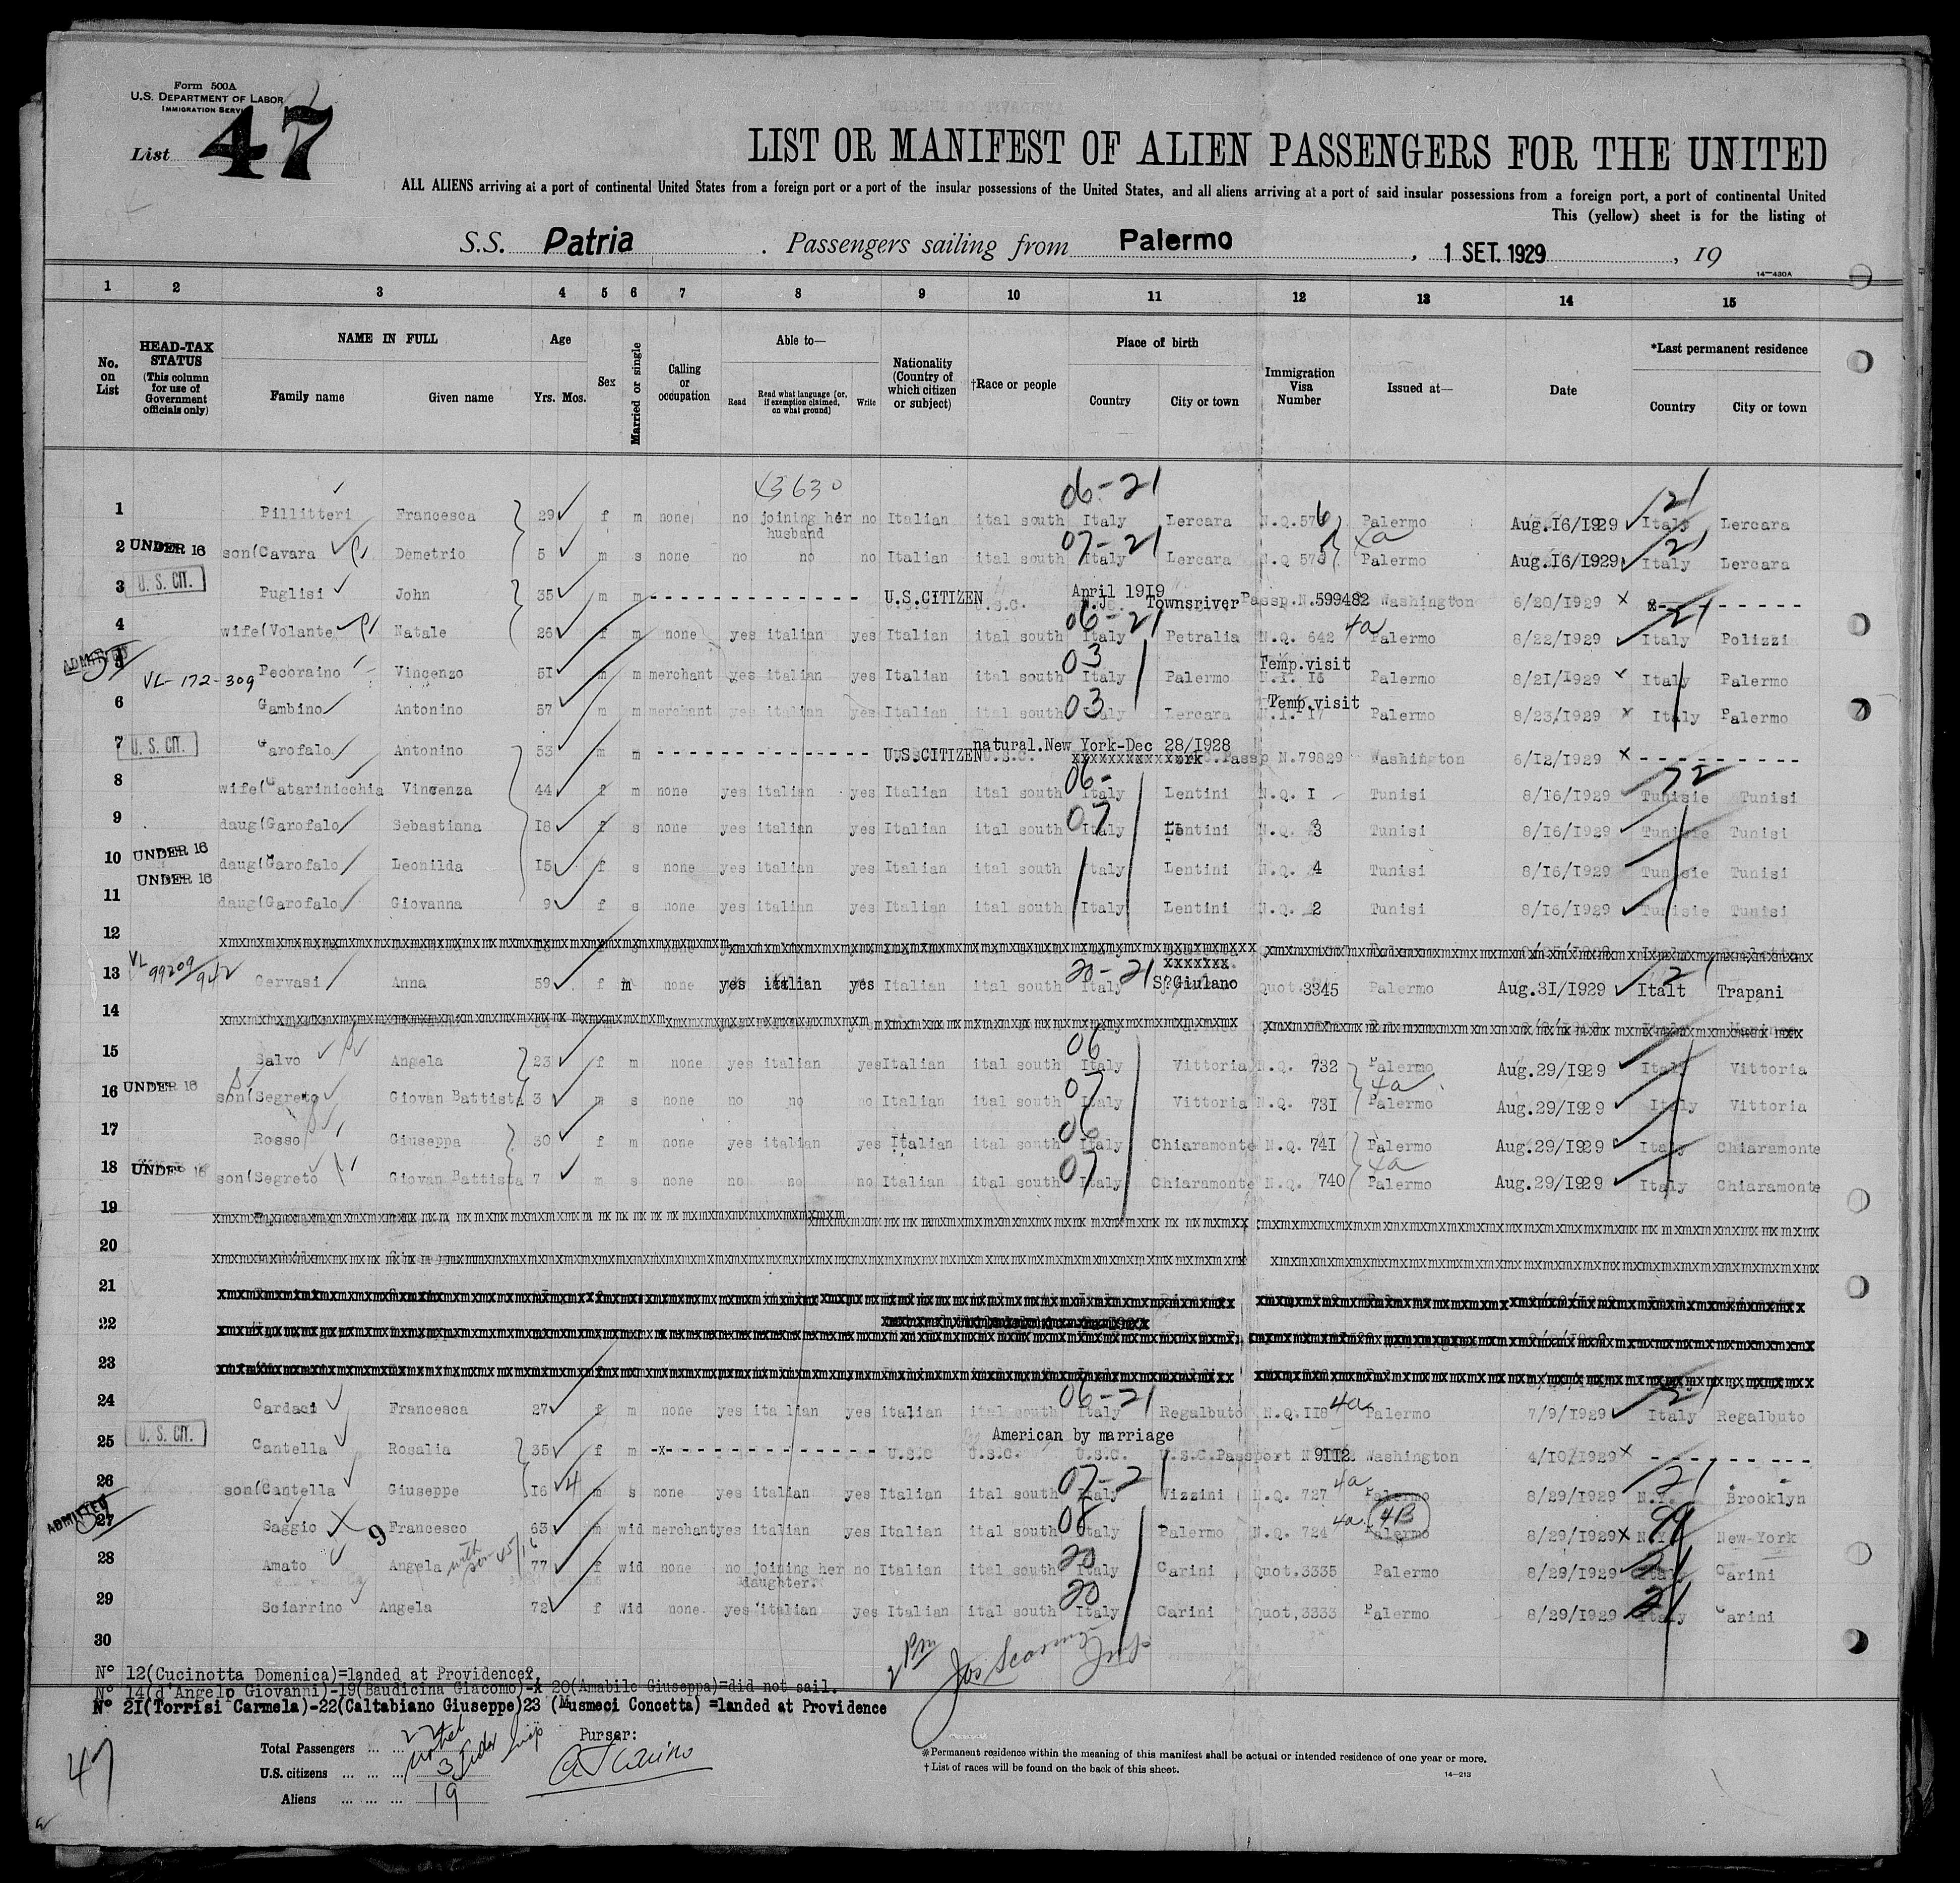 Form 500A
U.S. DEPARTMENT OF LABOR
IMMIGRATION SERV
List 47
LIST OR MANIFEST OF ALIEN PASSENGERS FOR THE UNITED
ALL ALIENS arriving at a port of continental United States from a foreign port or a port of the insular possessions of the United States, and all aliens arriving at a port of said insular possessions from a foreign port, a port of continental United
This (yellow) sheet is for the listing of
S.S. Patria . Passengers sailing from Palermo , 1 SET. 1929 , 19
14—430A
1 2 3 4 5 6 7 8 9 10 11 12 13 14 15
No. on List HEAD-TAX STATUS (This column for use of Government officials only) NAME IN FULL Family name Given name Age Yrs. Mos. Sex Married or single Calling or occupation Able to— Read Read what language [or, if exemption claimed, on what ground] Write Nationality (Country of which citizen or subject) †Race or people Place of birth Country City or town Immigration Visa Number Issued at— Date *Last permanent residence Country City or town
43630 06-21 21
1 Pillitteri Francesca 29 f m none no joining her husband no Italian ital south Italy Lercara N.Q.576 Palermo Aug.16/1929 Italy Lercara
07-21 4a 21
2 UNDER 16 son(Cavara Demetrio 5 m s none no no no Italian ital south Italy Lercara N.Q 575 Palermo Aug.16/1929 Italy Lercara
3 U. S. CIT. Puglisi John 35 m m - - - - - - - - - - - - - - U.S.CITIZEN U.S.C. April 1919 N.J Townsriver Passp.N.599482 Washington 6/20/1929 x - - - - - - - - -
06-21 4a 21
4 wife(Volante Natale 26 f m none yes italian yes Italian ital south Italy Petralia N.Q. 642 Palermo 8/22/1929 Italy Polizzi
ADMITTED 03 Temp.visit
5 VL-172-309 Pecoraino Vincenzo 51 m m merchant yes italian yes Italian ital south Italy Palermo N.I. 16 Palermo 8/21/1929 x Italy Palermo
03 Temp.visit
6 Gambino Antonino 57 m m merchant yes italian yes Italian ital south Italy Lercara N.I. 17 Palermo 8/23/1929 x Italy Palermo
natural.New York-Dec 28/1928
7 U. S. CIT. Garofalo Antonino 53 m m - - - - - - - - - - - - - - U.S.CITIZEN U.S.C. Passp N.79829 Washington 6/12/1929 x - - - - - - - - - -
06- 72
8 wife(Catarinicchia Vincenza 44 f m none yes italian yes Italian ital south Italy Lentini N.Q. 1 Tunisi 8/16/1929 Tunisie Tunisi
07
9 daug(Garofalo Sebastiana 18 f s none yes italian yes Italian ital south Italy Lentini N.Q. 3 Tunisi 8/16/1929 Tunisie Tunisi
10 UNDER 16 daug(Garofalo Leonilda 15 f s none yes italian yes Italian ital south Italy Lentini N.Q. 4 Tunisi 8/16/1929 Tunisie Tunisi
11 UNDER 16 daug(Garofalo Giovanna 9 f s none yes italian yes Italian ital south Italy Lentini N.Q. 2 Tunisi 8/16/1929 Tunisie Tunisi
12
VL 99209/942 20-21 xxxxxxx 21
13 Gervasi Anna 59 f m none yes italian yes Italian ital south Italy S?Giulano Quot.3345 Palermo Aug.31/1929 Italt Trapani
14
06
15 Salvo Angela 23 f m none yes italian yes Italian ital south Italy Vittoria N.Q. 732 Palermo Aug.29/1929 Italy Vittoria
07 4a
16 UNDER 16 son(Segreto Giovan Battista 3 m s none no no no Italian ital south Italy Vittoria N.Q. 731 Palermo Aug.29/1929 Italy Vittoria
06
17 Rosso Giuseppa 30 f m none yes italian yes Italian ital south Italy Chiaramonte N.Q. 741 Palermo Aug.29/1929 Italy Chiaramonte
07 4a
18 UNDER 16 son(Segreto Giovan Battista 7 m s none no no no Italian ital south Italy Chiaramonte N.Q. 740 Palermo Aug.29/1929 Italy Chiaramonte
19
20
21
22
23
06-21 4a 21
24 Cardaci Francesca 27 f m none yes italian yes italian ital south Italy Regalbuto N.Q.118 Palermo 7/9/1929 Italy Regalbuto
American by marriage
25 U. S. CIT. Cantella Rosalia 35 f m -x- - - - - - - - - - - - - U.S.C U.S.C. U.S.C. U.S.C.Passport N 9112 Washington 4/10/1929 x - - - - - - - - -
07-21 4a 21
26 son(Cantella Giuseppe 16 4 m s none yes italian yes Italian ital south Italy Vizzini N.Q. 727 Palermo 8/29/1929 N.Y. Brooklyn
ADMITTED 08 4a 4B 99
27 Saggio 9 Francesco 63 m wid merchant yes italian yes Italian ital south Italy Palermo N.Q. 724 Palermo 8/29/1929 x N.Y. New-York
20 21
28 Amato Angela 77 f wid none no joining her daughter. no Italian ital south Italy Carini Quot.3335 Palermo 8/29/1929 Italy Carini
20 21
29 Sciarrino Angela 72 f wid none yes italian yes Italian ital south Italy Carini Quot,3333 Palermo 8/29/1929 Italy Carini
30
N° 12(Cucinotta Domenica)=landed at Providence.
N° 14(d'Angelo Giovanni)-19(Baudicina Giacomo)- 20(Amabile Giuseppa)=did not sail.
N° 21(Torrisi Carmela)-22(Caltabiano Giuseppe)23 (Musmeci Concetta) =landed at Providence
47
Total Passengers ... ... 22
U.S. citizens ... ... ... 3
Aliens ... ... ... 19
Purser:
*Permanent residence within the meaning of this manifest shall be actual or intended residence of one year or more.
† List of races will be found on the back of this sheet.
14—213